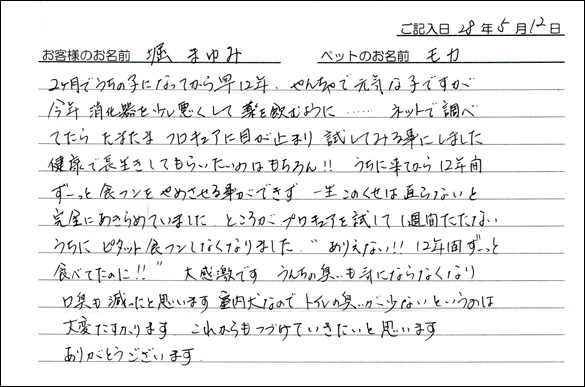 ご記入日 28年5月12日
お客様のお名前 堀 まゆみ ペットのお名前 モカ
2ヶ月でうちの子になってから早12年、やんちゃで元気な子ですが
今年 消化器を少し悪くして薬を飲むように…… ネットで調べ
てたら たまたま プロキュアに目が止まり 試してみる事にしました
健康で長生きしてもらいたいのはもちろん!! うちに来てから12年間
ずーっと食フンをやめさせる事ができず 一生このくせは直らないと
完全にあきらめていました。ところがプロキュアを試して1週間たたない
うちに ピタッと食フンしなくなりました。"ありえない!! 12年間ずーっと
食べてたのに!!" 大感激です うんちの臭いも気にならなくなり
口臭も減ったと思います 室内犬なので トイレの臭いが少ないというのは
大変たすかります。これからもつづけていきたいと思います
ありがとうございます。